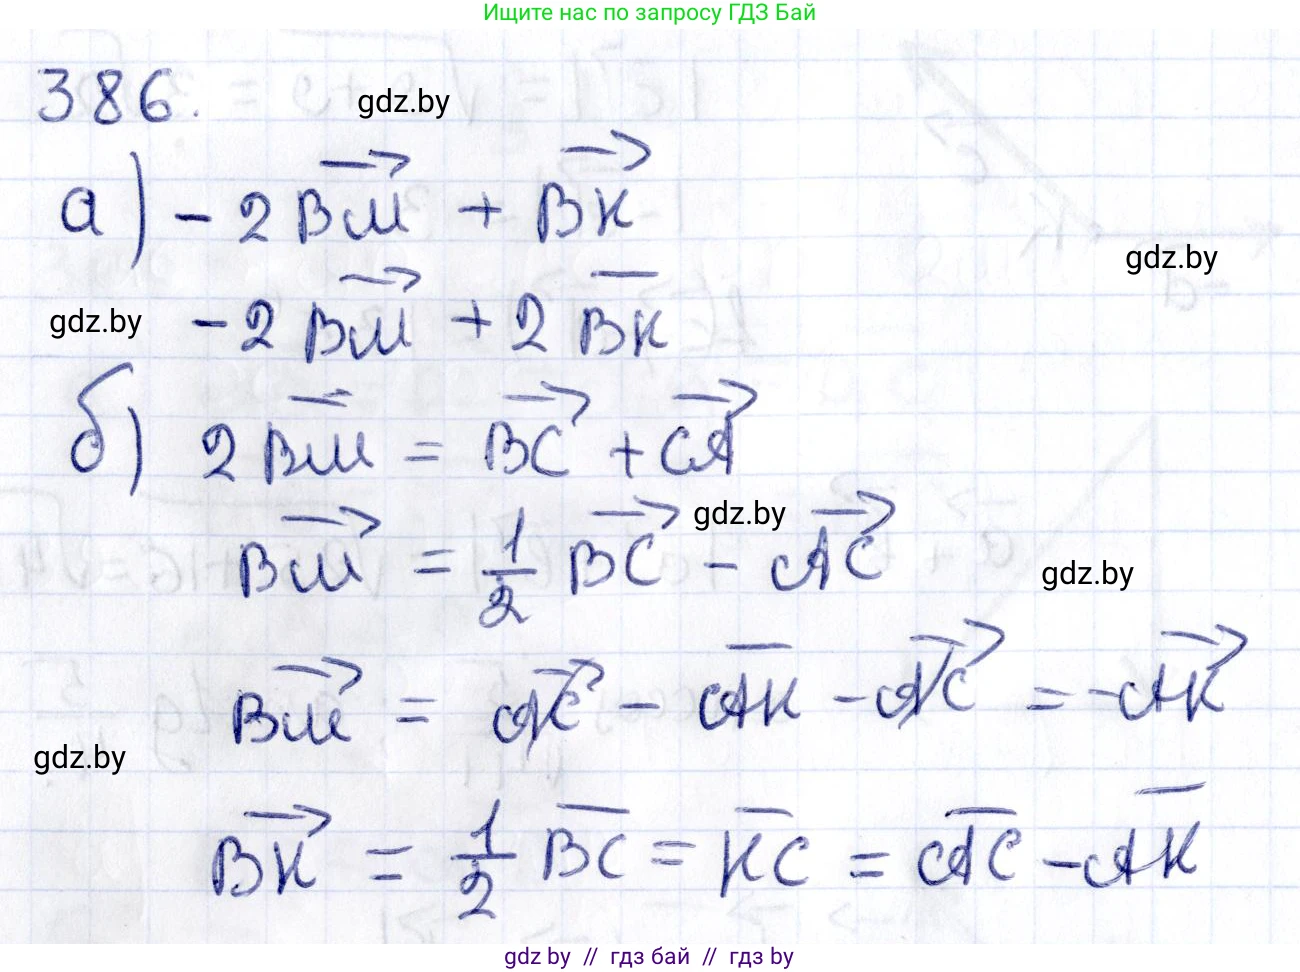 Ищите нас по запросу ГДЗ Бай
386.
gdz.by
а) -2BM + BK
gdz.by
gdz.by
-2BM + 2BK
б) 2BM = BC + CA
gdz.by
BM = 1/2 BC - AC
gdz.by
BM = AC - AK - AC = -AK
gdz.by
BK = 1/2 BC = KC = AC - AK
gdz.by // гдз бай // gdz by